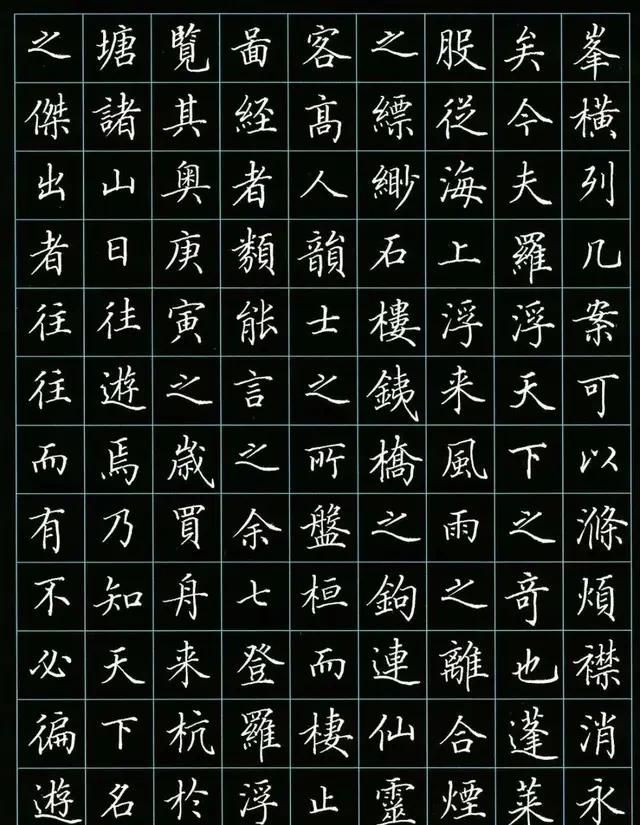 峯橫列几案可以滌煩襟消永
矣今夫羅浮天下之竒也蓬萊
股從海上浮来風雨之離合煙
之縹緲石樓銕橋之鉤連仙靈
客高人韻士之所盤桓而棲止
啚経者類能言之余七登羅浮
覧其奥庚寅之歳買舟来杭於
塘諸山日往遊焉乃知天下名
之傑出者往往而有不必徧遊